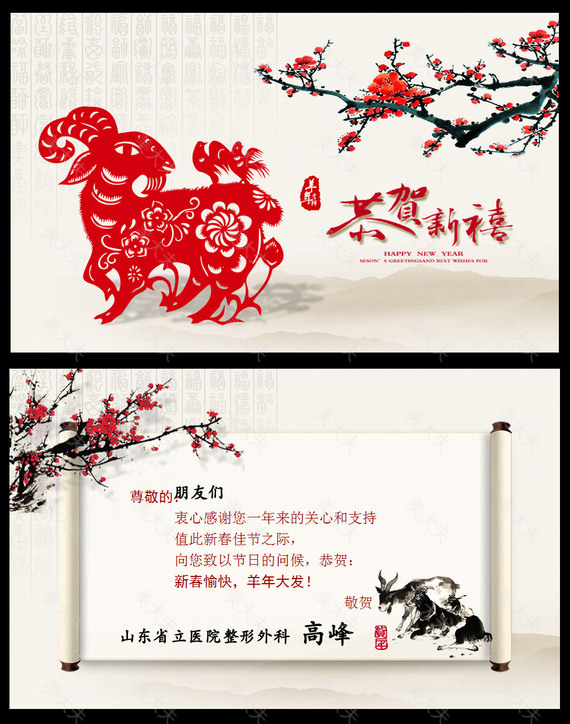 恭贺新禧
HAPPY NEW YEAR
SESON'S GREETINGSAND BEST WISHES FOR
尊敬的朋友们
衷心感谢您一年来的关心和支持
值此新春佳节之际，
向您致以节日的问候，恭贺：
新春愉快，羊年大发！
敬贺
山东省立医院整形外科 高峰